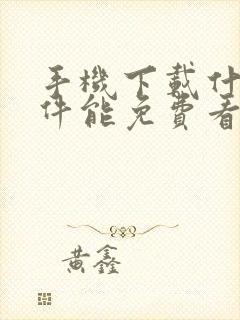 手機下載什
件能免費看
黃鑫